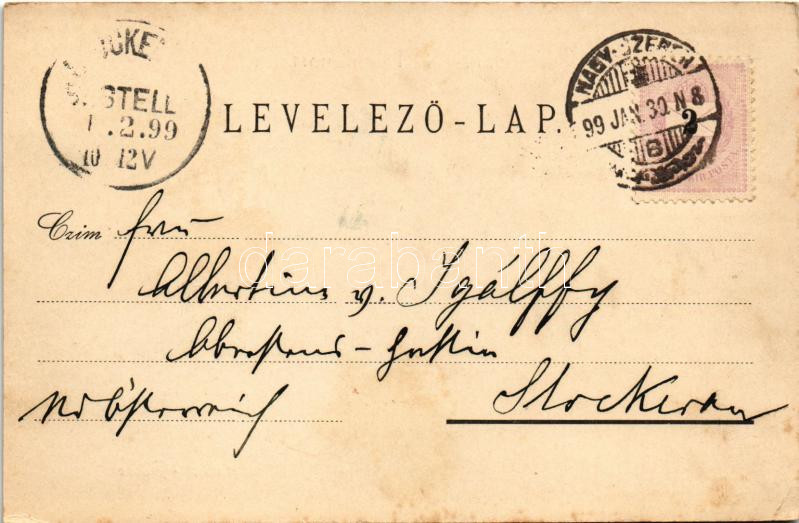 STOCKE
BESTELL
1.2.99
10 12V
LEVELEZŐ-LAP.
NAGY-SZEBEN
99 JAN. 30. N 8
B
2
Czim Frau
Albertine v. Igálffy
Oberstens-Gattin
Stockerau
Nd Österreich
darabanth